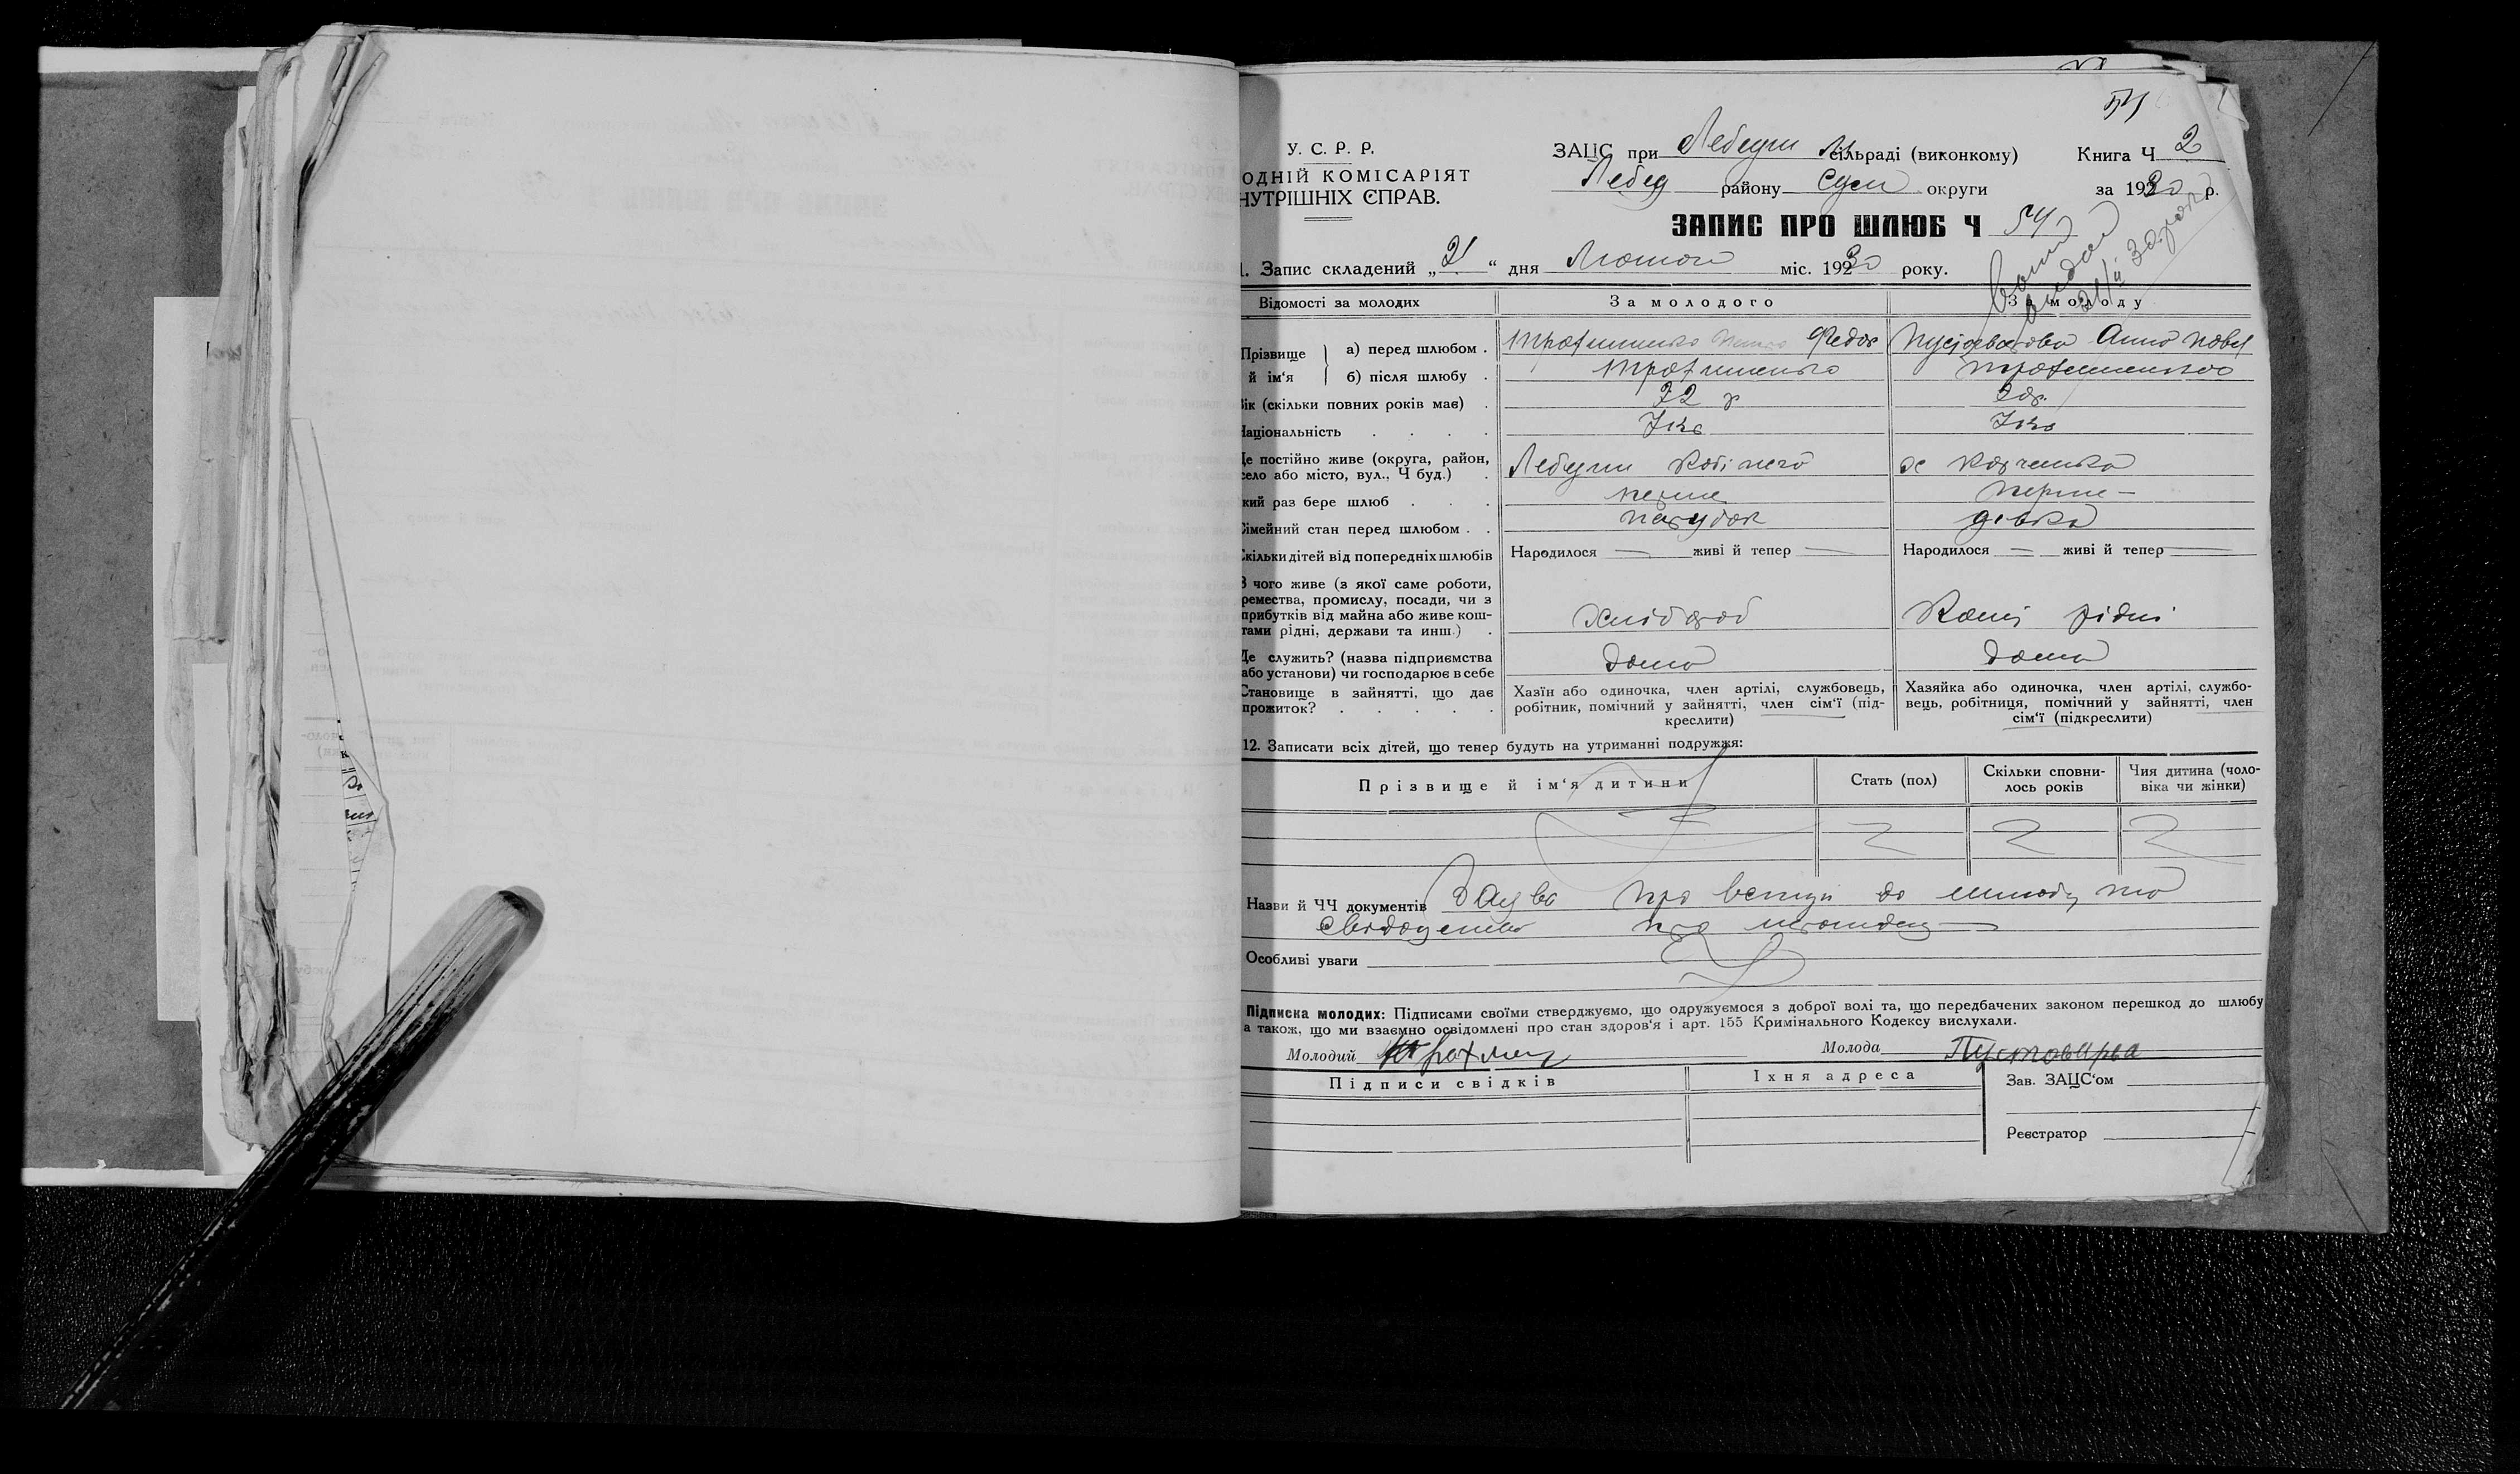 54
У. С. Р. Р.
ОДНІЙ КОМІСАРІЯТ
НУТРІШНІХ СПРАВ.
ЗАЦС при Лебедин м сільраді (виконкому) Книга Ч 2
Лебед району Сум округи за 1930 р.
ЗАПИС ПРО ШЛЮБ Ч 54
1. Запис складений „21“ дня Лютого міс. 1930 року.
Відомості за молодих За молодого За молоду
Прізвище й ім‘я
а) перед шлюбом . Трохименко Федор Анна Павл
б) після шлюбу . Трохименко Трохименкова
ік (скільки повних років має) . 22 р 20р.
аціональність . . . . Укр Укр
е постійно живе (округа, район,
село або місто, вул., Ч буд.) . Лебедин
кий раз бере шлюб . . . перше перше –
імейний стан перед шлюбом . . парубок дівка
кільки дітей від попередніх шлюбів Народилося — живі й тепер — Народилося — живі й тепер —
З чого живе (з якої саме роботи,
ремества, промислу, посади, чи з
прибутків від майна або живе кош-
тами рідні, держави та инш.) . Хлібороб Кошт рідні
Де служить? (назва підприємства
або установи) чи господарює в себе дома дома
Становище в зайнятті, що дає
прожиток? . . . . .
Хазїн або одиночка, член артілі, службовець,
робітник, помічний у зайнятті, член сім‘ї (під-
креслити)
Хазяйка або одиночка, член артілі, службо-
вець, робітниця, помічний у зайнятті, член
сім‘ї (підкреслити)
12. Записати всіх дітей, що тепер будуть на утриманні подружжя:
Прізвище й ім‘я дитини Стать (пол) Скільки сповни-
лось років Чия дитина (чоло-
віка чи жінки)
Назви й ЧЧ документів Заява про вступ до шлюбу та
свідоцтво про
Особливі уваги
Підписка молодих: Підписами своїми стверджуємо, що одружуємося з доброї волі та, що передбачених законом перешкод до шлюбу
а також, що ми взаємно освідомлені про стан здоров‘я і арт. 155 Кримінального Кодексу вислухали.
Молодий Трохмен Молода Пустоварва
Підписи свідків Їхня адреса Зав. ЗАЦС‘ом
Реєстратор